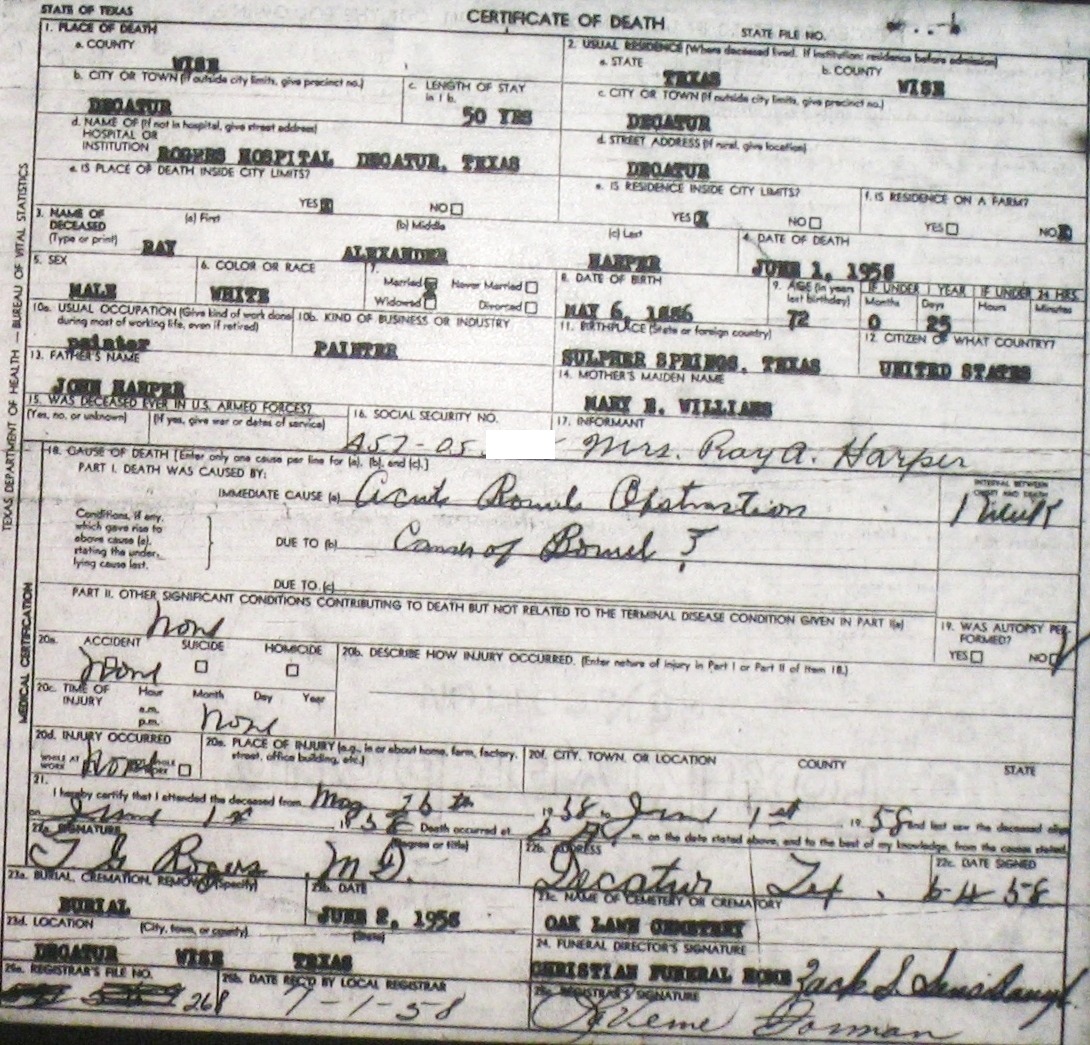 STATE OF TEXAS
CERTIFICATE OF DEATH
STATE FILE NO.
TEXAS DEPARTMENT OF HEALTH — BUREAU OF VITAL STATISTICS
1. PLACE OF DEATH
a. COUNTY
WISE
2. USUAL RESIDENCE (Where deceased lived. If institution: residence before admission)
a. STATE
TEXAS
b. COUNTY
WISE
b. CITY OR TOWN (If outside city limits, give precinct no.)
DECATUR
c. LENGTH OF STAY
in 1 b.
50 YRS
c. CITY OR TOWN (If outside city limits, give precinct no.)
DECATUR
d. NAME OF (If not in hospital, give street address)
HOSPITAL OR
INSTITUTION ROGERS HOSPITAL DECATUR, TEXAS
d. STREET ADDRESS (If rural, give location)
DECATUR
e. IS PLACE OF DEATH INSIDE CITY LIMITS?
YES NO
e. IS RESIDENCE INSIDE CITY LIMITS?
YES X NO
f. IS RESIDENCE ON A FARM?
YES NO
3. NAME OF
DECEASED
(Type or print)
(a) First
RAY
(b) Middle
ALEXANDER
(c) Last
HARPER
4. DATE OF DEATH
JUNE 1, 1958
5. SEX
MALE
6. COLOR OR RACE
WHITE
7.
Married Never Married
Widowed Divorced
8. DATE OF BIRTH
MAY 6, 1886
9. AGE (In years
last birthday)
72
IF UNDER 1 YEAR
Months Days
0 25
IF UNDER 24 HRS.
Hours Minutes
10a. USUAL OCCUPATION (Give kind of work done
during most of working life, even if retired)
painter
10b. KIND OF BUSINESS OR INDUSTRY
PAINTER
11. BIRTHPLACE (State or foreign country)
SULPHER SPRINGS, TEXAS
12. CITIZEN OF WHAT COUNTRY?
UNITED STATES
13. FATHER'S NAME
JOHN HARPER
14. MOTHER'S MAIDEN NAME
MARY E. WILLIAMS
15. WAS DECEASED EVER IN U.S. ARMED FORCES?
(Yes, no, or unknown) (If yes, give war or dates of service)
16. SOCIAL SECURITY NO.
457-05
17. INFORMANT
Mrs. Ray A. Harper
MEDICAL CERTIFICATION
18. CAUSE OF DEATH [Enter only one cause per line for (a), (b), and (c).]
PART I. DEATH WAS CAUSED BY:
IMMEDIATE CAUSE (a) Acute Bowel Obstruction
INTERVAL BETWEEN
ONSET AND DEATH
1 Week
Conditions, if any,
which gave rise to
above cause (a),
stating the under-
lying cause last.
DUE TO (b) Cancer of Bowel ?
DUE TO (c)
PART II. OTHER SIGNIFICANT CONDITIONS CONTRIBUTING TO DEATH BUT NOT RELATED TO THE TERMINAL DISEASE CONDITION GIVEN IN PART I(a)
None
19. WAS AUTOPSY PER-
FORMED?
YES NO
20a. ACCIDENT SUICIDE HOMICIDE
None
20b. DESCRIBE HOW INJURY OCCURRED. (Enter nature of injury in Part I or Part II of item 18.)
20c. TIME OF
INJURY
Hour Month Day Year
a.m.
p.m.
None
20d. INJURY OCCURRED
WHILE AT
WORK
None
20e. PLACE OF INJURY (e.g., in or about home, farm, factory,
street, office building, etc.)
20f. CITY, TOWN, OR LOCATION COUNTY STATE
21.
I hereby certify that I attended the deceased from May 26th 1958 to June 1st 1958 and last saw the deceased alive
on June 1st 1958 Death occurred at m. on the date stated above, and to the best of my knowledge, from the causes stated.
22a. SIGNATURE
(Degree or title)
T G Rogers M D.
22b. ADDRESS
Decatur Tex.
22c. DATE SIGNED
6-4-58
23a. BURIAL, CREMATION, REMOVAL (Specify)
BURIAL
23b. DATE
JUNE 2, 1958
23c. NAME OF CEMETERY OR CREMATORY
OAK LAWN CEMETERY
23d. LOCATION (City, town, or county) (State)
DECATUR WISE TEXAS
24. FUNERAL DIRECTOR'S SIGNATURE
CHRISTIAN FUNERAL HOME Zack S.
25a. REGISTRAR'S FILE NO.
268
25b. DATE REC'D BY LOCAL REGISTRAR
7-1-58
25c. REGISTRAR'S SIGNATURE
Verne Forman